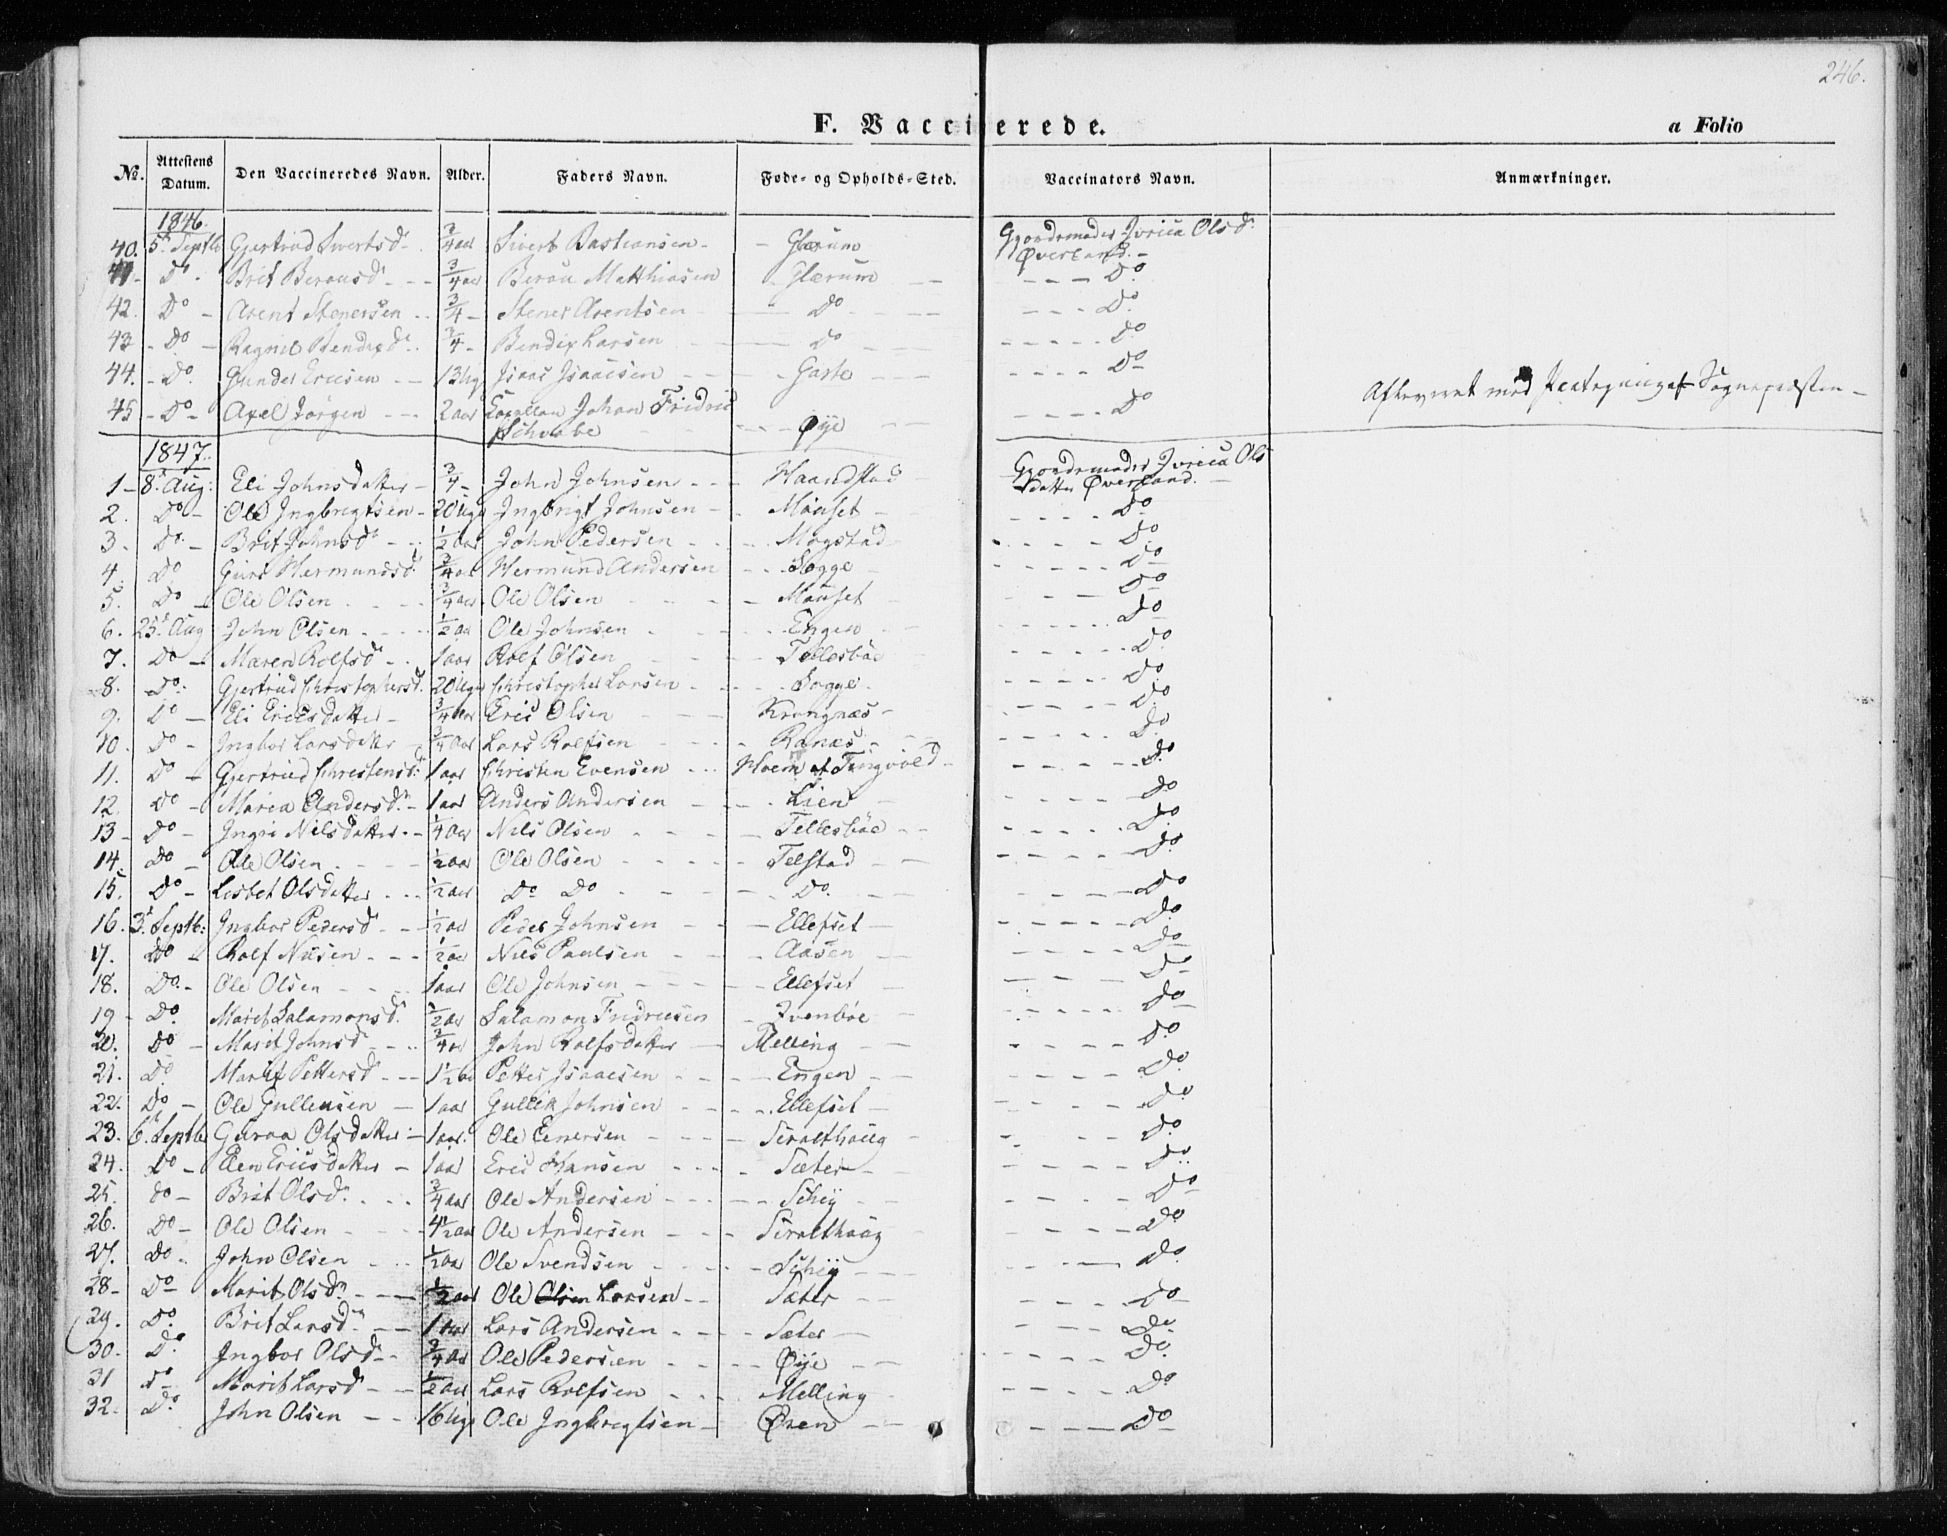 246.
F. Vaccinerede.
a Folio
No. Attestens Datum. Den Vaccineredes Navn. Alder. Faders Navn. Føde- og Opholds-Sted. Vaccinators Navn. Anmærkninger.
1846.
40. 5t Septb Gjertrud Sivertsd. 3/4 aar Sivert Bastiansen - Glærum Gjordemoder Ivrica Olsd. Øverland. -
41 - Do. Brit Berausd - 3/4 aar Berau Matthiasen Glærum - Do
42. Do - Arent Stenersen 3/4 - Stener Arentsen - Do - Do
43 - Do - Ragnil Bendixd. 3/4 - Bendix Larsen - Do - Do
44. - Do. Gunder Ericsen - 13 Ug Isaac Isaacsen - Gaste - Do
45 - Do - Axel Jørgen - 2 aar Capellan Johan Fridric Schvabe - Øye - Do Sognepræsten -
1847.
1 - 8t Aug: Eli Johnsdatter - 3/4 - John Johnsen - Haandstad Gjordemoder Ivrica Olsdatter Øverland. -
2. Do - Ole Ingbrigtsen - 20 Uger Ingbrigt Johnsen - Mauset - Do
3. Do. - Brit Johnsd - 1/2 aar John Pedersen - Mogstad - Do
4. Do Guro Hermundsd 3/4 aar Hermund Andersen - Sogge - Do
5. Do - Ole Olsen - 3/4 aar Ole Olsen - Mauset - Do
6. 25t Aug John Olsen - 1/2 aar Ole Johnsen - Engen - Do
7. Do - Maren Rolfsd - 1 aar Rolf Olsen - Tellesbøe - Do
8. Do. Gjertrud Christophersd. 20 Uger Christopher Larsen - Sogge - Do
9. Do - Eli Ericsdatter - 3/4 aar Eric Olsen - Krongnæs - Do
10. Do - Ingbor Larsdatter - 3/4 aar Lars Rolfsen - Ranæs - Do
11. Do - Gjertrud Christensd. 1 aar Christen Evensen - Hoem af Tingvold - Do
12. Do - Maria Andersd. - 1 aar Anders Andersen - Lien - Do
13 - Do - Ingri Nilsdatter - 1/4 aar Nils Olsen - Tellesbøe - Do
14. Do - Ole Olsen - 1/2 aar Ole Olsen - Telstad - Do
15. Do - Lisbet Olsdatter - 1/2 aar Do Do - Do. - Do
16. 3t Septb: Ingbor Pedersd - 1/2 aar Peder Johnsen - Ellefset - Do
17. Do - Rolf Nilsen - 1/2 aar Nils Paulsen - Aasen - Do
18. Do. - Ole Olsen - 1 aar Ole Johnsen - Ellefset - Do
19 - Do. Marit Salamonsd. 1/2 aar Salamon Fridricsen - Ivenbøe - Do
20. Do - Marit Johnsd - 3/4 aar John Rolfsdatter - Melling - Do
21. Do Marit Pettersd - 1 1/2 aar Petter Isaacsen - Engen - Do
22. Do - Ole Gullensen - 1 aar Gullik Johnsen - Ellefset - Do
23. 6t Septb Guroa Olsdatter - 1 aar. Ole Einersen - Siralthoug - Do
24. Do - Elen Ericsdatter - 1 aar Eric Hansen - Sæter - Do
25. Do - Brit Olsd. - 3/4 aar Ole Andersen - Schey - Do
26. Do - Ole Olsen - 4 1/2 aar Ole Andersen - Siralthoug - Do
27. Do - John Olsen - 1/2 aar Ole Svendsen - Schey - Do
28 - Do - Marit Olsd. - 1/2 aar Ole Olsen Larsen - Sæter - Do
29. Do. Brit Larsd - 1 aar Lars Andersen - Sæter - Do
30. Do Ingbor Olsd - 3/4 aar Ole Pedersen - Øye - Do
31 Do Marit Larsd - 1/2 aar Lars Rolfsen - Melling - Do
32. Do. John Olsen - 16 Uger Ole Ingbrigtsen - Øren - Do